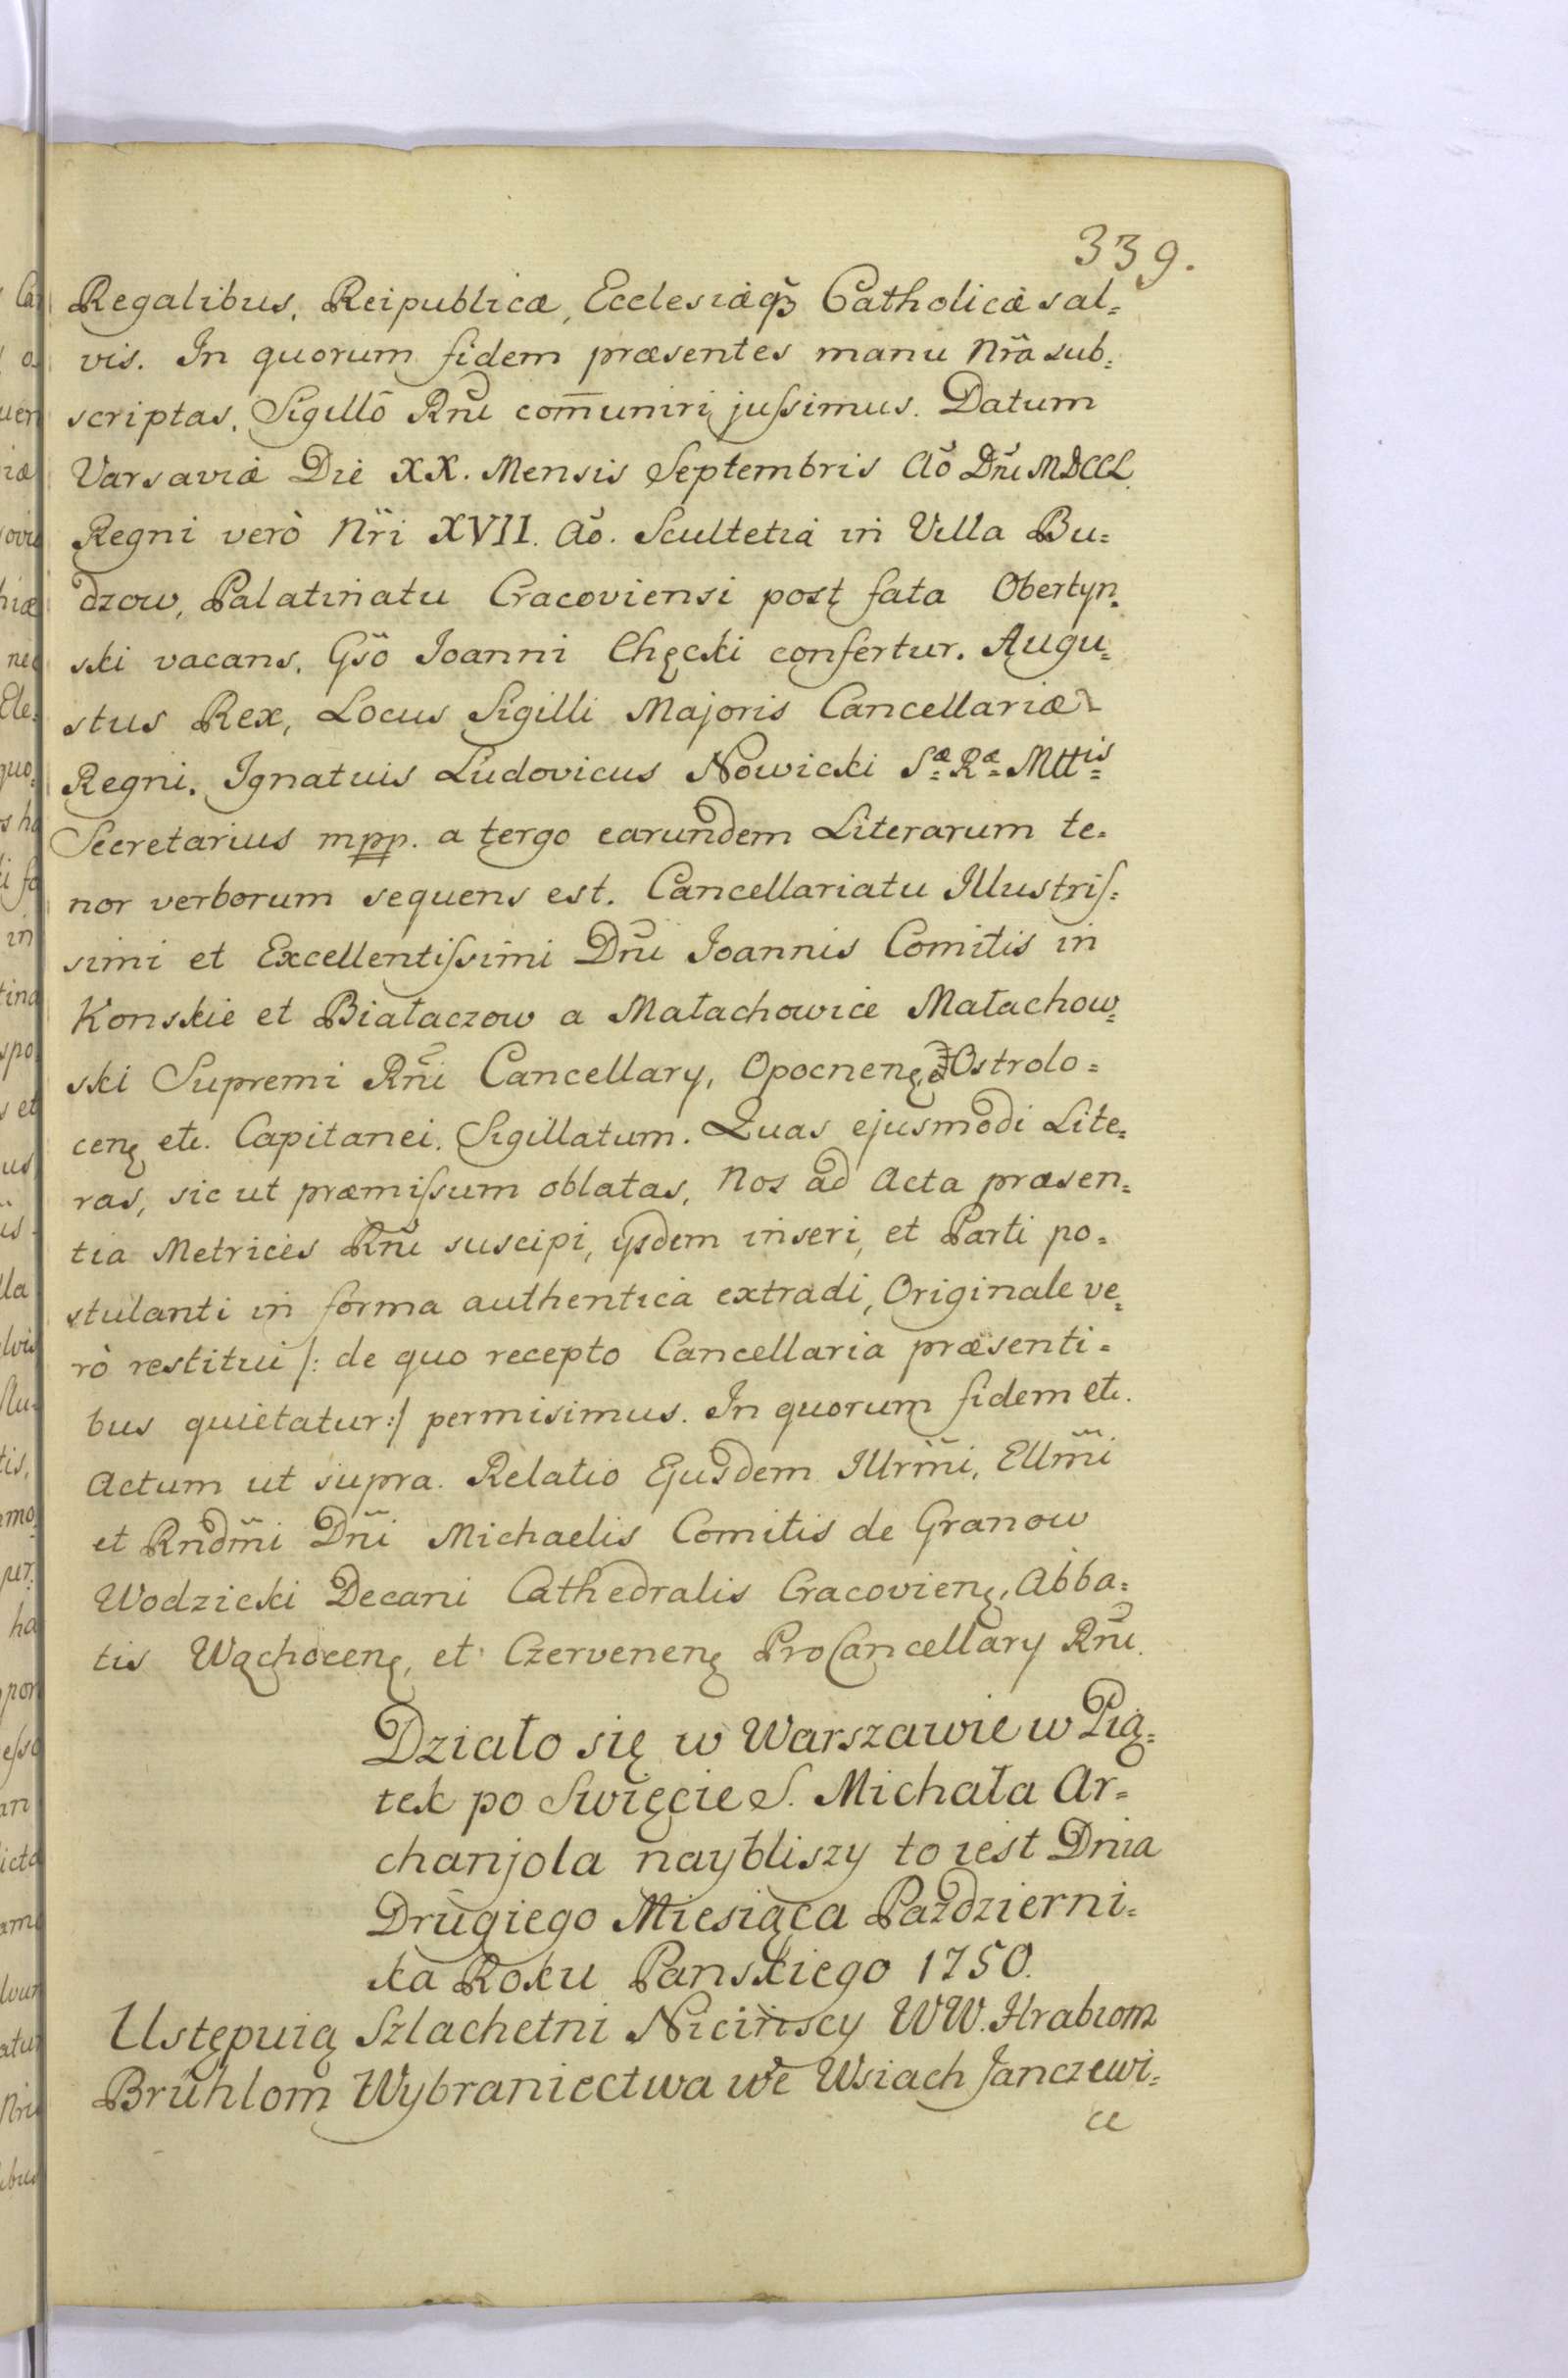 339.
Regalibus, Reipublicæ, Ecclesiæq₃ Catholicæ sal=
vis. In quorum fidem præsentes manu Nr̃a sub=
scriptas, Sigillō Rn̄i com̄uniri jussimus. Datum
Varsaviæ Die XX. Mensis Septembris Aō Dn̄i MDCCL
Regni verò Nr̃i XVII. Aō. Scultetia in Villa Bu=
dzow, Palatinatu Cracoviensi post fata Obertyn=
ski vacans, Gsō Joanni Chęcki confertur. Augu=
stus Rex, Locus Sigilli Majoris Cancellariæ
Regni. Ignatuis Ludovicus Nowicki Sæ Ræ Mttis
Secretarius mpp. a tergo earundem Literarum te=
nor verborum sequens est. Cancellariatu Illustris=
simi et Excellentissimi Dn̄i Joannis Comitis in
Konskie et Białaczow a Małachowice Małachow=
ski Supremi Rn̄i Cancellary, Opocnenę Ostrolo=
cenę etc. Capitanei. Sigillatum. Quas ejusmodi Lite=
ras, sic ut præmissum oblatas, Nos ad Acta præsen=
tia Metrices Rn̄i suscipi, ijsdem inseri, et Parti po=
stulanti in forma authentica extradi, Originale ve=
rò restitui /: de quo recepto Cancellaria præsenti=
bus quietatur :/ permisimus. In quorum fidem etc.
Actum ut supra. Relatio Ejusdem Illrm̃i, Ellm̃i
et Rndm̃i Dñi Michaelis Comitis de Granow
Wodzicki Decani Cathedralis Cracovienę, Abba=
tis Wąchocenę, et Czervenenę ProCancellary Rn̄i.
Działo się w Warszawie w Pią=
tek po Swięcie S. Michała Ar=
chanjola naybliszy to iest Dnia
Drugiego Miesiąca Pazdzierni=
ka Roku Panskiego 1750.
Ustępuią Szlachetni Nicińscy WW. Hrabiom
Brühlom Wybraniectwa we Wsiach Janczewi=
ce